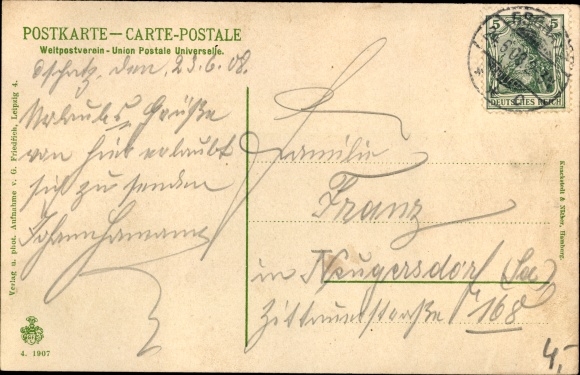 POSTKARTE — CARTE-POSTALE
Weltpostverein - Union Postale Universelle.
Oschatz, den, 23.6.08.
Urlaubs Grüße
von hier erlaubt
sich zu senden
Familie
Franz
in Neugersdorf (Sa)
Zittauerstraße 768
5 5
DEUTSCHES REICH
Verlag u. phot. Aufnahme v. G. Friedrich, Leipzig 4.
Knackstedt & Näther, Hamburg.
4. 1907
4,-